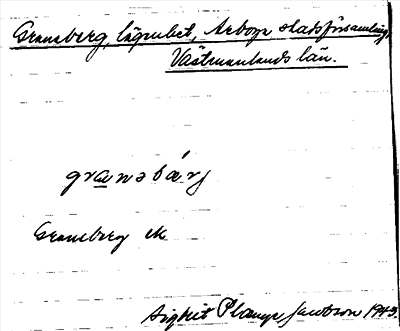 Graneberg, lägenhet, Arboga stadsförsamling,
Västmanlands län.
granəbárj
Graneberg ek
Sigbrit Plange Jansson 1943.